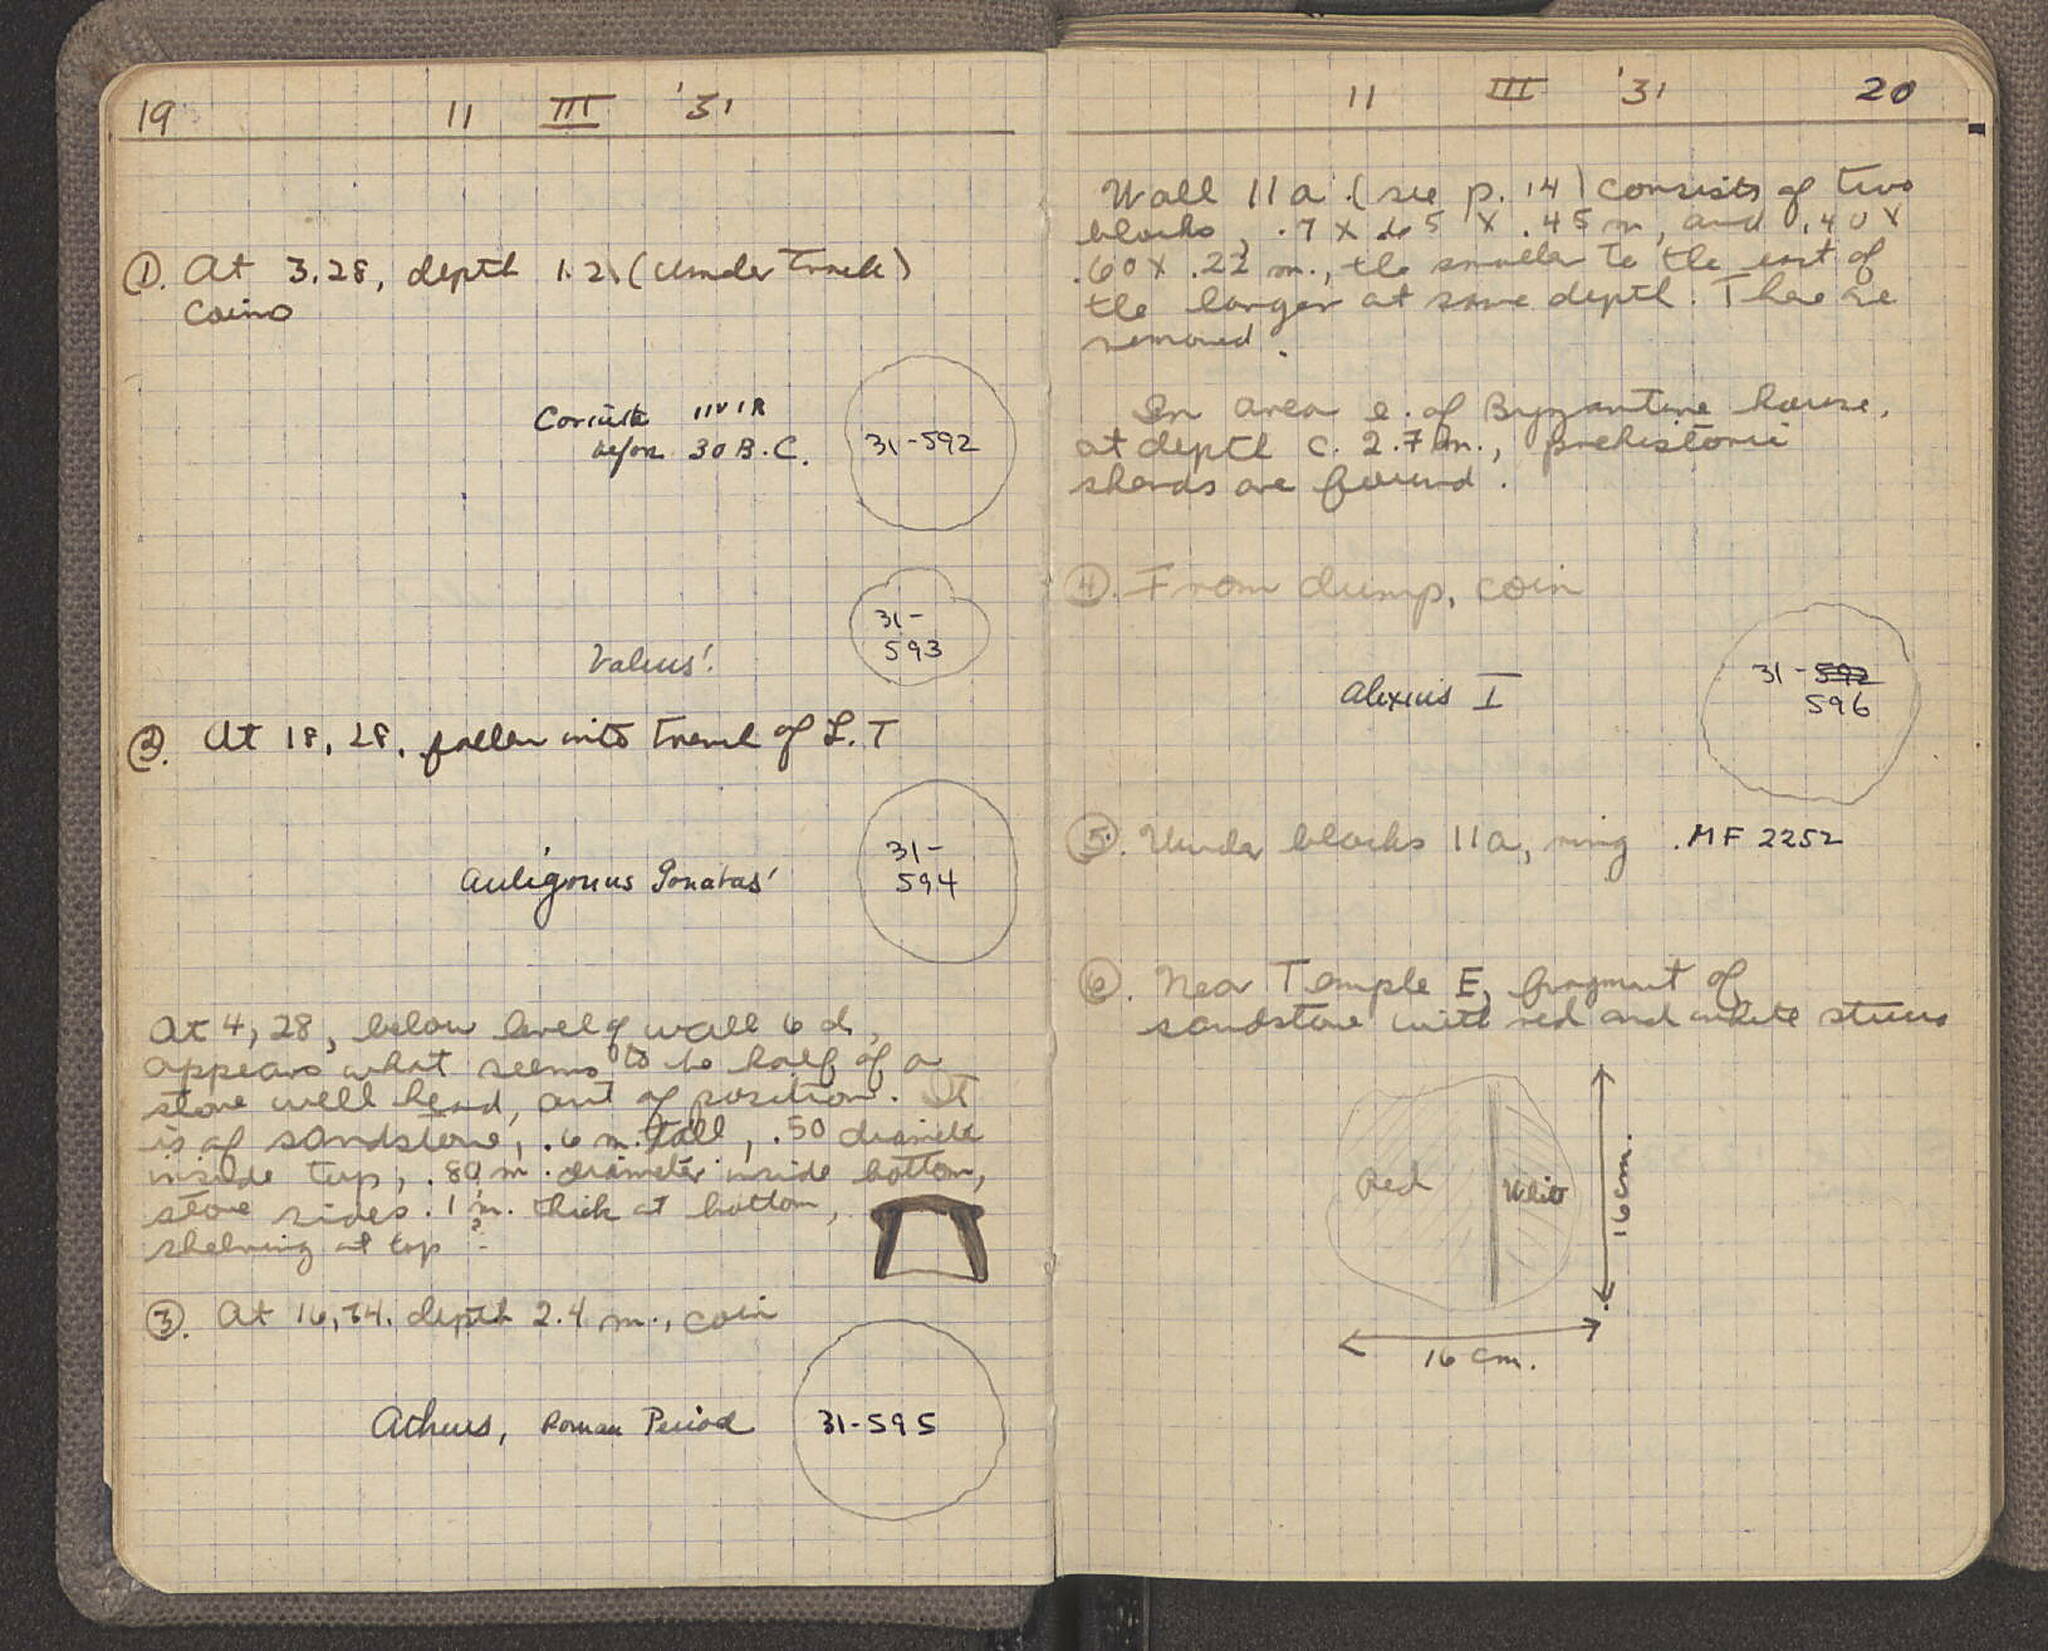 19 11 III '31
①. At 3.28, depth 1.2 (under track)
Coins
Corinth IIVIR
before 30 B.C.
31-592
31-
593
Valens!
②. At 18, 28, fallen into trench of L. T
31-
594
Antigonus Gonatas'
At 4, 28, below level of wall 6 d,
appears what seems to be half of a
stone well head, out of position. It
is of sandstone, .6 m. tall, .50 diameter
inside top, .80 m. diameter inside bottom,
stone sides .1 m. thick at bottom,
shelving at top
③. At 16, 34. depth 2.4 m., coin
Athens, Roman Period
31-595
11 III '31 20
Wall 11a (see p. 14) consists of two
blocks, .7 X .65 X .45 m, and .40 X
.60 X .22 m., the smaller to the east of
the larger at same depth. These are
removed.
In area e. of Byzantine house,
at depth c. 2.7 m., prehistoric
sherds are found.
④. From dump, coin
31-592
596
Alexius I
⑤. Under blocks 11a, ring. MF 2252
⑥. Near Temple E, fragment of
sandstone with red and white stucco
Red White
16 cm.
16 cm.